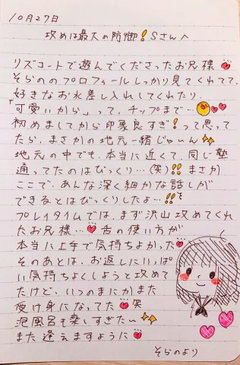 10月27日
攻めは最大の防御！Sさんへ
リズコートで遊んでくださったお兄様
そらののプロフィールしっかり見てくれてて、
好きなお水差し入れしてくれたり、
「可愛いから」って、チップまで…
初めましてから印象良すぎ！って思って
たら、まさかの地元一緒じゃん
地元の中でも、本当に近くて、同じ塾
通ってたのはびっくり…(笑)!!まさか
ここで、あんな深く細かな話しが
できるとはびっくりしたよー!!
プレイタイムでは、まず沢山攻めてくれ
たお兄様…舌の使い方が
本当に上手で気持ちよかった
そのあとは、お返しにいっぱ
い気持ちよくしようと攻めて
たけど、いつのまにかまた
受け身になってた笑
泡風呂も楽しすぎたい
また逢えますように
そらのより